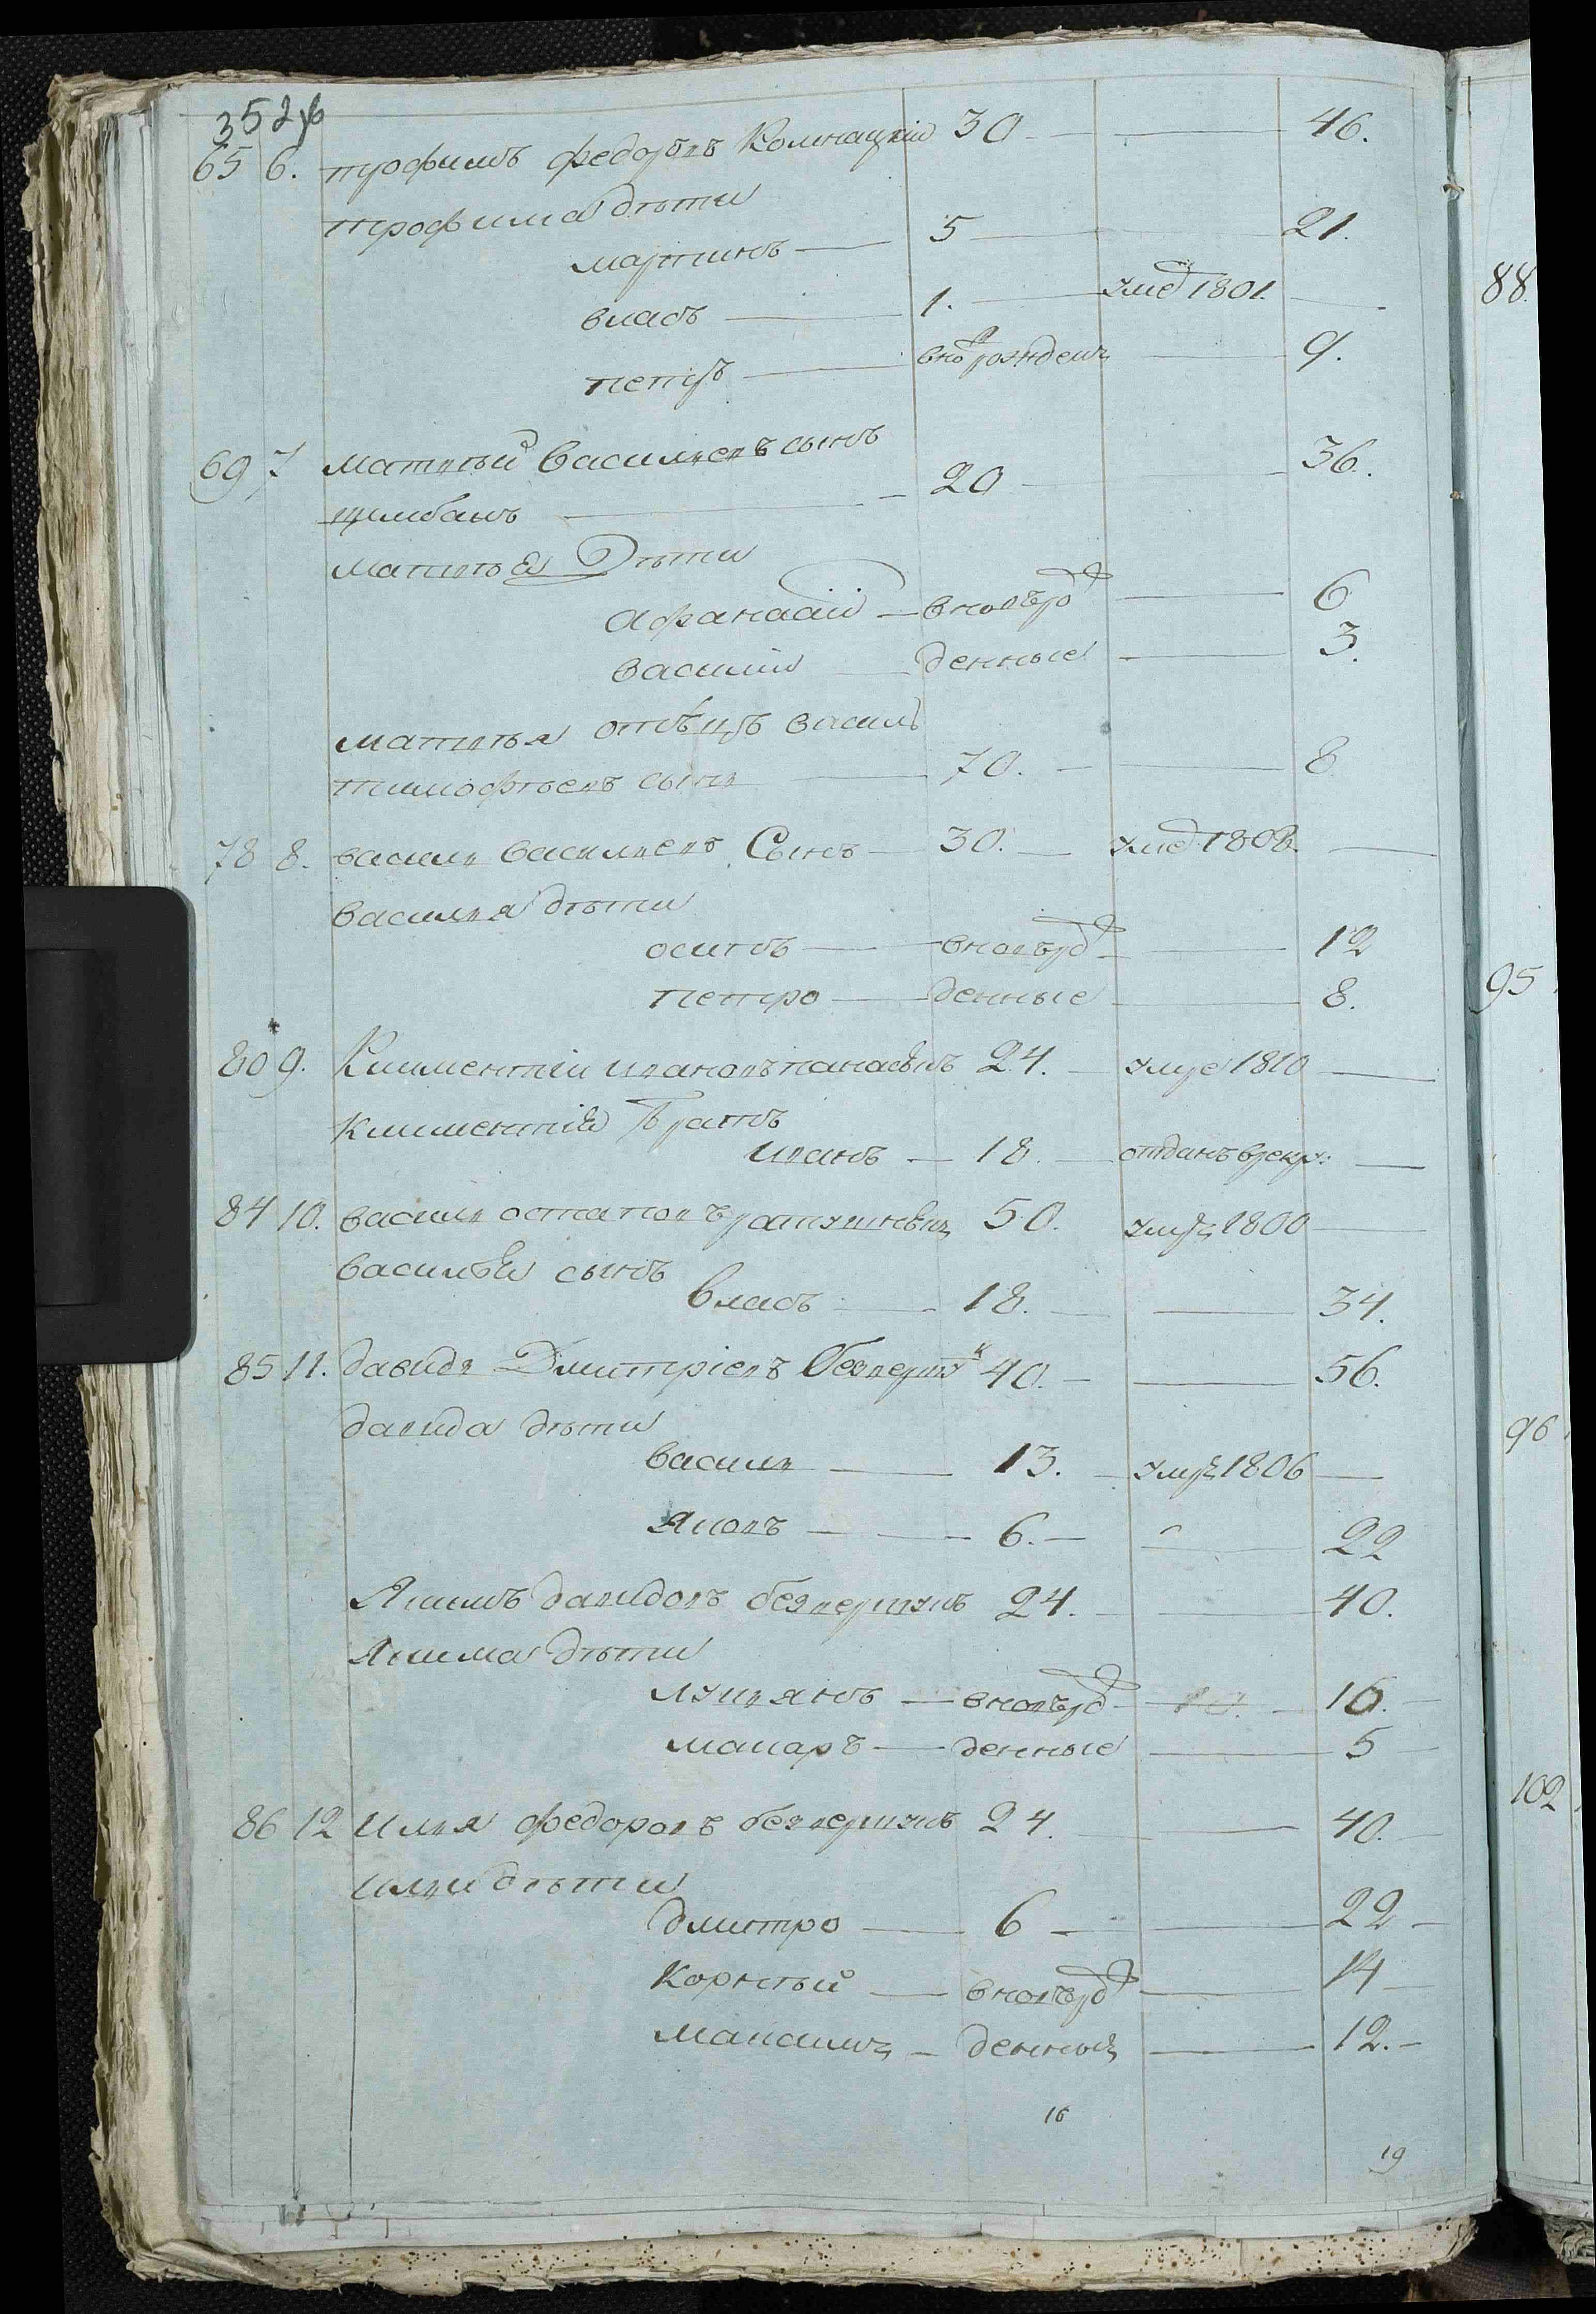 352
65 6. трофимъ федоровъ Комнацкій 30 46.
трофима дѣти
мартинъ 5 21.
власъ 1. умр 1801.
петръ вно рожденъ 9.
69 7 матвѣй Васильевъ сынъ
цимбалъ 20 36.
матвѣя Дѣти
Афанасій вновьрож 6
василій денные 3.
матвѣя отецъ василь
тимофѣевъ сынъ 70. 8
78 8. василь Васильевъ Сынъ 30. умре 1808.
Василья дѣти
осипъ вновьрож 12
петро денные 8.
80 9. Климентій ивановъ панасюкъ 24. умре 1810
Климентія Братъ
иванъ 18 отданъ врекр:
84 10. василь остаповъ 50. умръ 1800
Василья сынъ
Власъ 18. 34.
85 11. давидъ Дмитріевъ Безверхук 40. 56.
давида дѣти
василь 13. умръ 1806
Яковъ 6. 22
Якимъ давидовъ безверхукъ 24. 40.
Якима дѣти
лукянъ вновьрож 10. 16.
макаръ денные 5
86 12 Илья федоровъ безверхукъ 24. 40.
ильи дѣти
дмитро 6 22
Корнѣй вновьрож 14
Максимъ денныя 12.
16
19
88.
95.
96.
102.